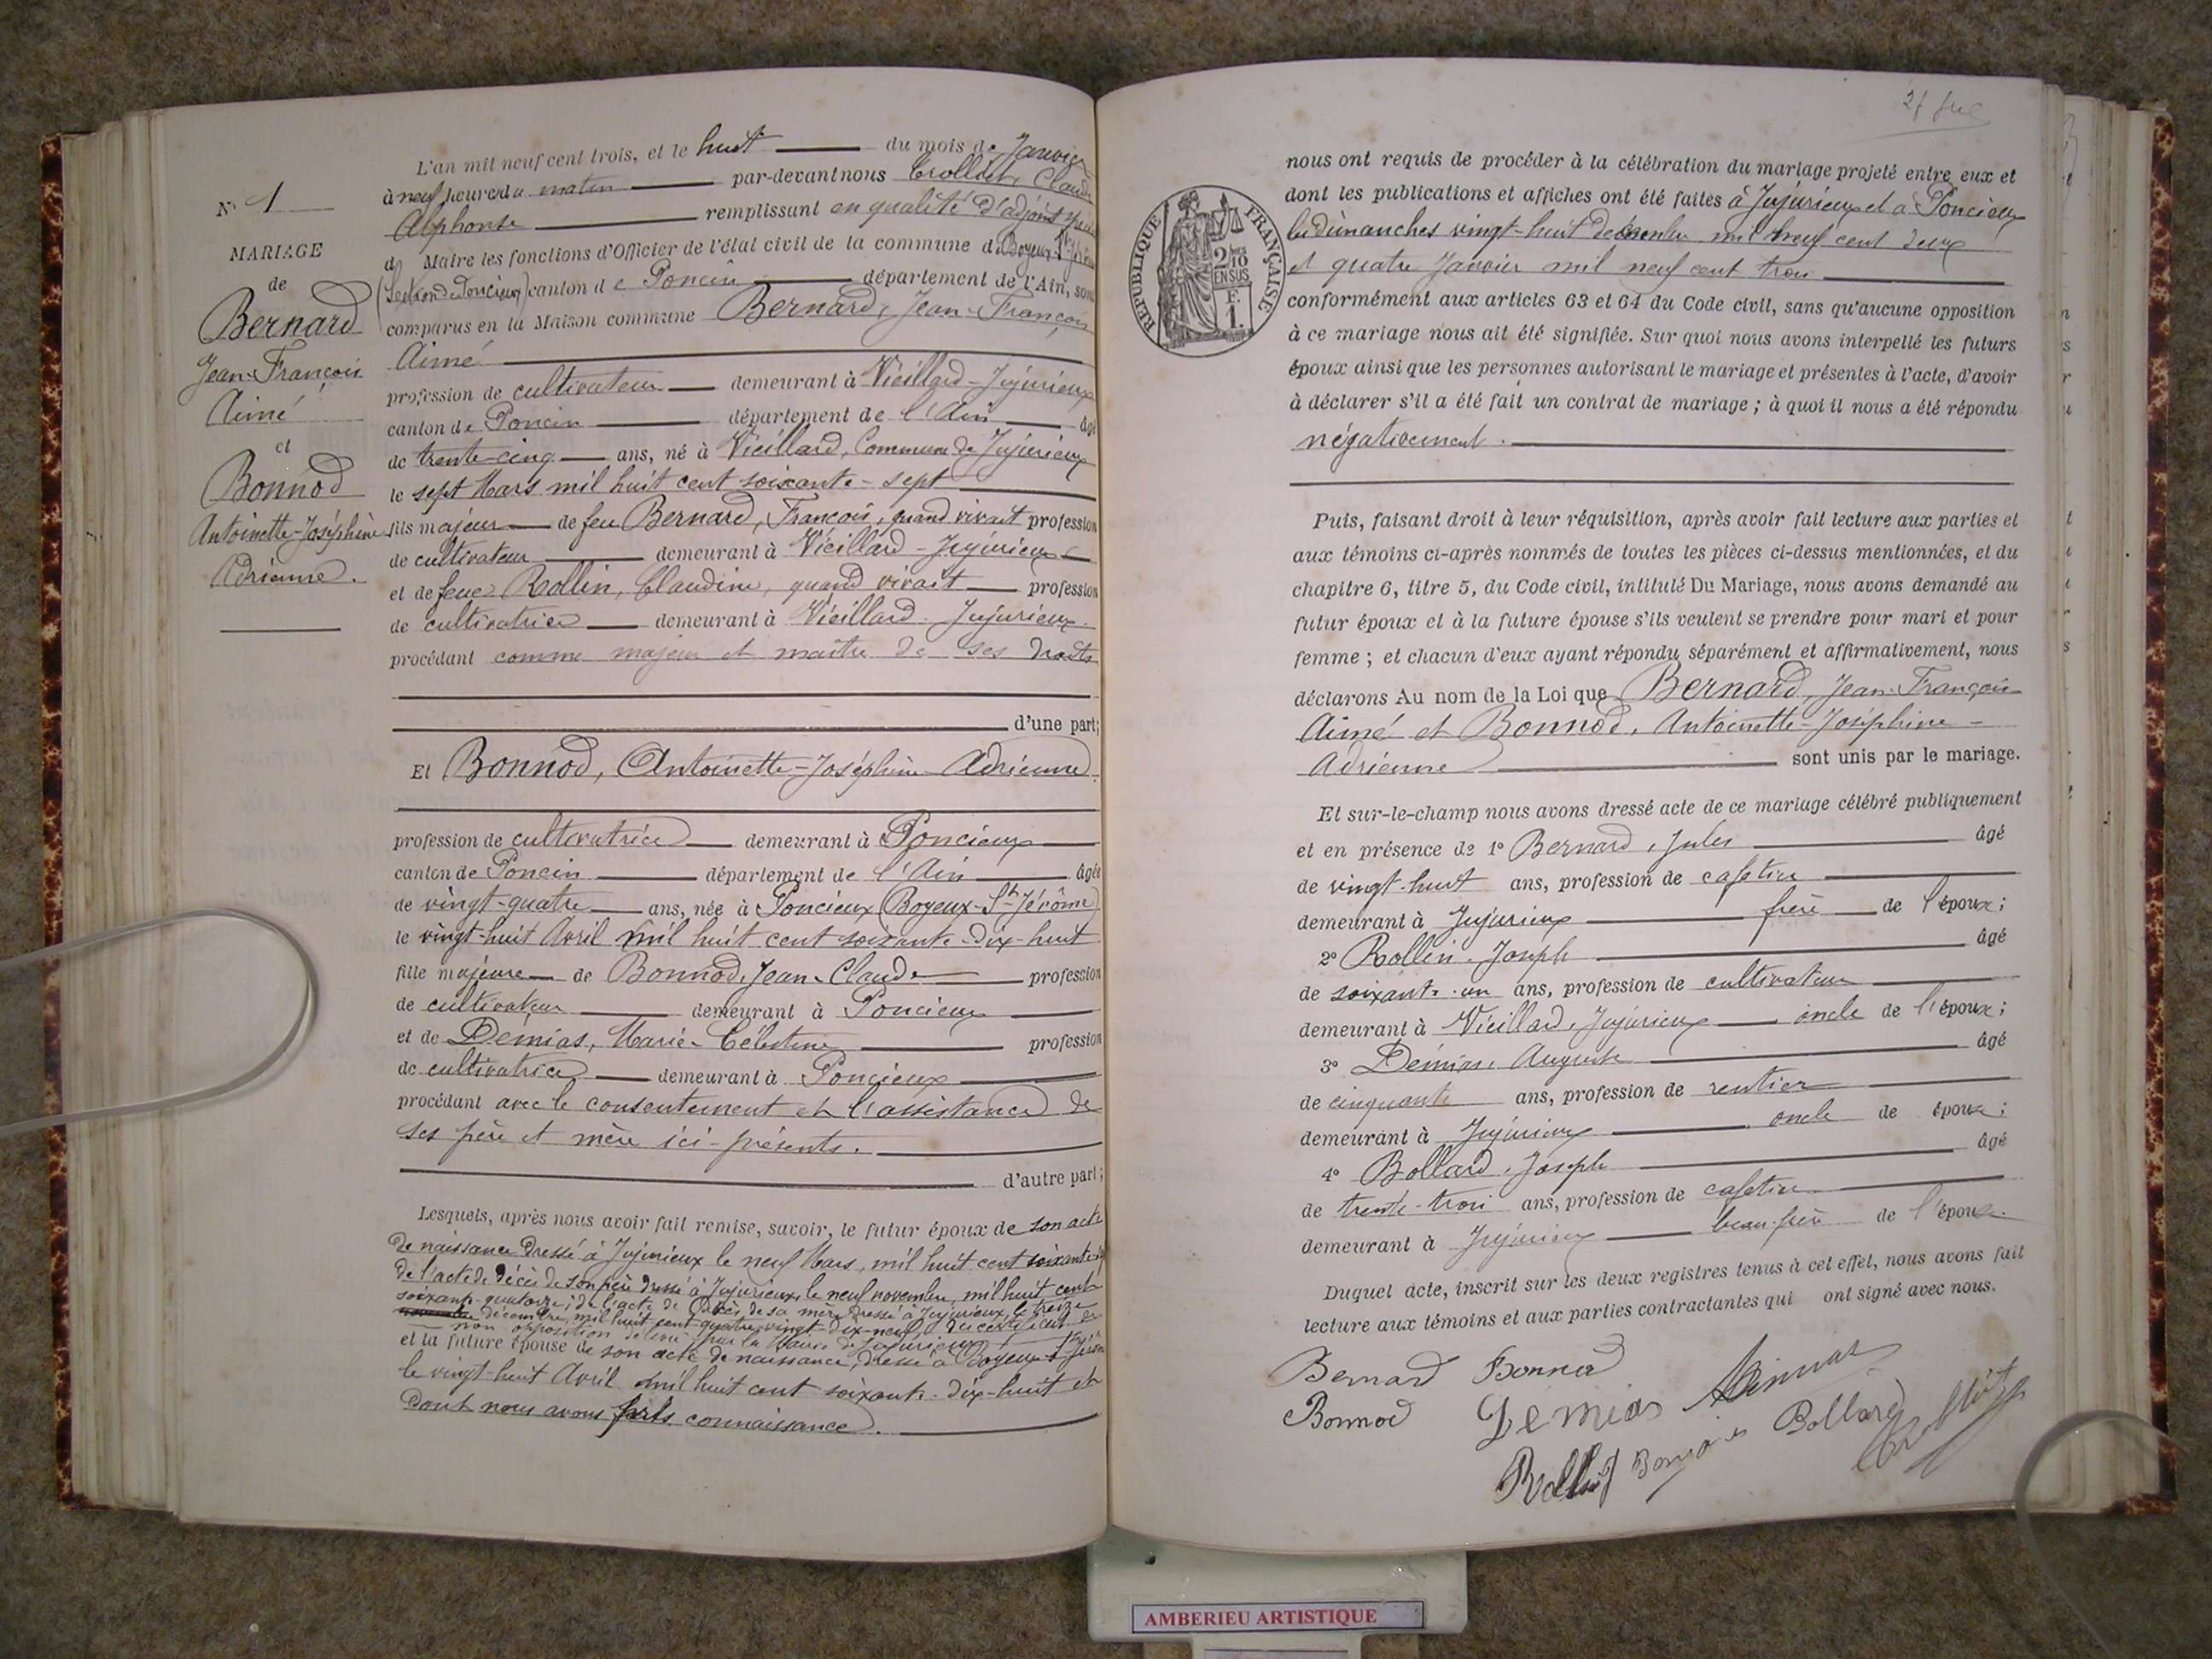 N° 1
MARIAGE
de
Bernard
Jean-François
Aimé
et
Bonnod
Antoinette-Joséphine
Adrienne.
L'an mil neuf cent trois, et le huit du mois de Janvier
à neuf heures du matin par-devant nous Crollet, Claude
Alphonse remplissant en qualité d'adjoint spécial
d Maire les fonctions d'Officier de l'état civil de la commune de Boyeux-St Jérôme
(Section de Poncieux) canton de Poncin département de l'Ain, sont
comparus en la Maison commune Bernard, Jean-François
Aimé
profession de cultivateur demeurant à Vieillard-Jujurieux
canton de Poncin département de l'Ain âgé
de trente-cinq ans, né à Vieillard, Commune de Jujurieux
le sept Mars mil huit cent soixante-sept
fils majeur de feu Bernard, François, quand vivait profession
de cultivateur demeurant à Vieillard-Jujurieux
et de feue Rollin, Claudine, quand vivait profession
de cultivatrice demeurant à Vieillard-Jujurieux.
procédant comme majeur et maître de ses droits
d'une part;
Et Bonnod, Antoinette-Joséphine Adrienne.
profession de cultivatrice demeurant à Poncieux
canton de Poncin département de l'Ain âgée
de vingt-quatre ans, née à Poncieux (Boyeux-St Jérôme)
le vingt-huit Avril mil huit cent soixante-dix-huit
fille majeure de Bonnod, Jean-Claude profession
de cultivateur demeurant à Poncieux
et de Démias, Marie-Célestine profession
de cultivatrice demeurant à Poncieux
procédant avec le consentement et l'assistance de
ses père et mère ici-présents.
d'autre part;
Lesquels, après nous avoir fait remise, savoir, le futur époux de son acte
de naissance dressé à Jujurieux le neuf Mars, mil huit cent soixante-sept
de l'acte de décès de son père dressé à Jujurieux, le neuf novembre, mil huit cent
soixante-quatorze; de l'acte de décès de sa mère dressé à Jujurieux, le treize
décembre, mil huit cent quatre-vingt-dix-neuf, du certificat de
non opposition délivré par le Maire de Jujurieux
et la future épouse de son acte de naissance, dressé à Boyeux-St Jérôme
le vingt-huit Avril mil huit cent soixante-dix-huit et
dont nous avons pris connaissance.
RÉPUBLIQUE FRANÇAISE
2/10
EN SUS
F.
1.
nous ont requis de procéder à la célébration du mariage projeté entre eux et
dont les publications et affiches ont été faites à Jujurieux et à Poncieux
les dimanches vingt-huit décembre mil neuf cent deux
et quatre Janvier mil neuf cent trois
conformément aux articles 63 et 64 du Code civil, sans qu'aucune opposition
à ce mariage nous ait été signifiée. Sur quoi nous avons interpellé les futurs
époux ainsi que les personnes autorisant le mariage et présentes à l'acte, d'avoir
à déclarer s'il a été fait un contrat de mariage; à quoi il nous a été répondu
négativement.
Puis, faisant droit à leur réquisition, après avoir fait lecture aux parties et
aux témoins ci-après nommés de toutes les pièces ci-dessus mentionnées, et du
chapitre 6, titre 5, du Code civil, intitulé Du Mariage, nous avons demandé au
futur époux et à la future épouse s'ils veulent se prendre pour mari et pour
femme; et chacun d'eux ayant répondu séparément et affirmativement, nous
déclarons Au nom de la Loi que Bernard, Jean-François
Aimé et Bonnod, Antoinette-Joséphine-
Adrienne sont unis par le mariage.
Et sur-le-champ nous avons dressé acte de ce mariage célébré publiquement
et en présence de 1° Bernard, Jules âgé
de vingt-huit ans, profession de cafetier
demeurant à Jujurieux frère de l'époux;
2° Rollin, Joseph âgé
de soixante-un ans, profession de cultivateur
demeurant à Vieillard, Jujurieux oncle de l'époux;
3° Démias, Auguste âgé
de cinquante ans, profession de rentier
demeurant à Jujurieux oncle de épouse;
4° Bollard, Joseph âgé
de trente-trois ans, profession de cafetier
demeurant à Jujurieux beau-frère de l'épouse.
Duquel acte, inscrit sur les deux registres tenus à cet effet, nous avons fait
lecture aux témoins et aux parties contractantes qui ont signé avec nous.
Bernard Bonnod
Bonnod Demias Démias
Rollin Bollard
AMBERIEU ARTISTIQUE